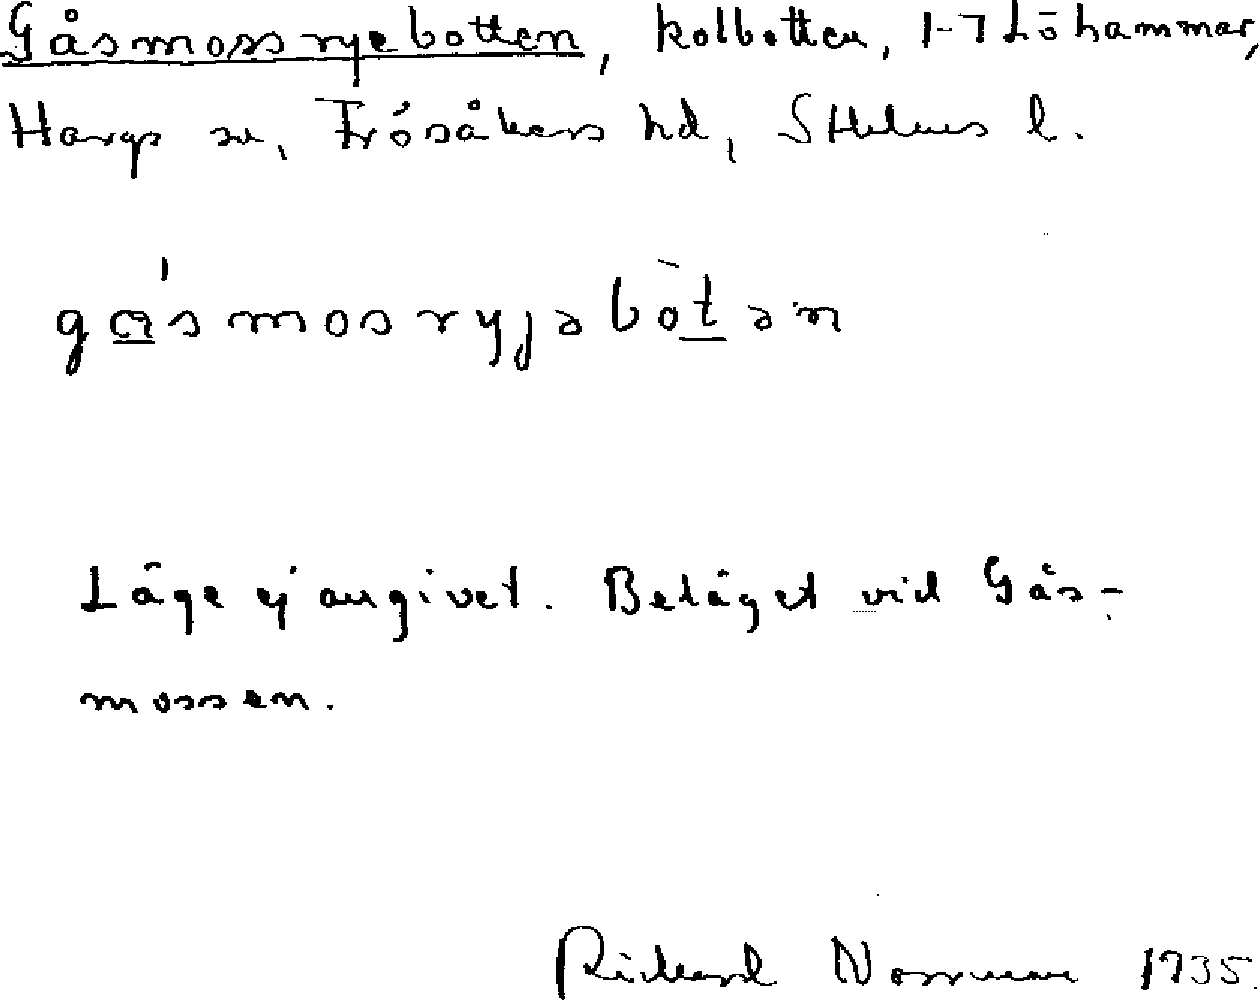 Gåsmossryebotten, kolbotten, 1-7 Löhammar,
Hargs sn, Frösåkers hd, Sthlms l.
gɑsmosryjəbotən
Läge ej angivet. Beläget vid Gås-
mossen.
Rickard Norrman 1935